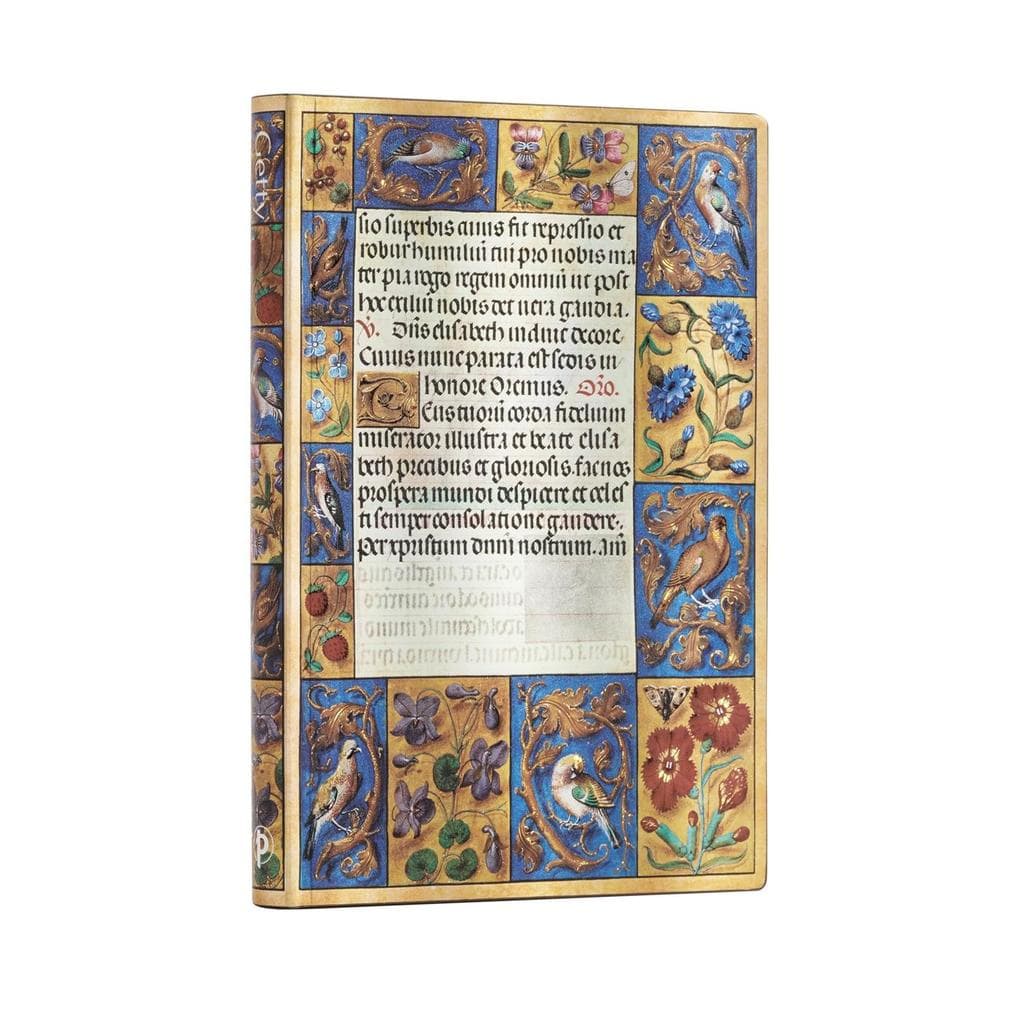 Getty
sio superbis cuius fit repressio et
robur humiliū cui pro nobis ma
ter pia rogo regem omniū ut post
hoc exiliū nobis det uera gaudia.
℣. Dn̄s elisabeth induit decore
Cuius nunc parata est sedis in
honore Oremus. Or̄o.
DEus tuorū corda fidelium
miserator illustra et beate elisa
beth precibus et gloriosis. fac nos
prospera mundi despicere et celes
ti semper consolatione gaudere.
Per xpristum dnm̄ nostrum. am̄